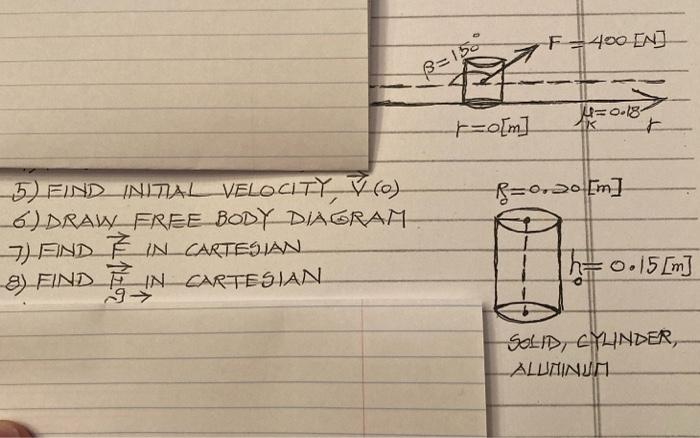 β=150°
F=400[N]
μ_K=0.18
r=0[m]
r
5) FIND INITIAL VELOCITY, V⃗(0)
6) DRAW FREE BODY DIAGRAM
7) FIND F⃗ IN CARTESIAN
8) FIND F⃗_g IN CARTESIAN
R_o=0.20[m]
h_o=0.15[m]
SOLID, CYLINDER,
ALUMINUM